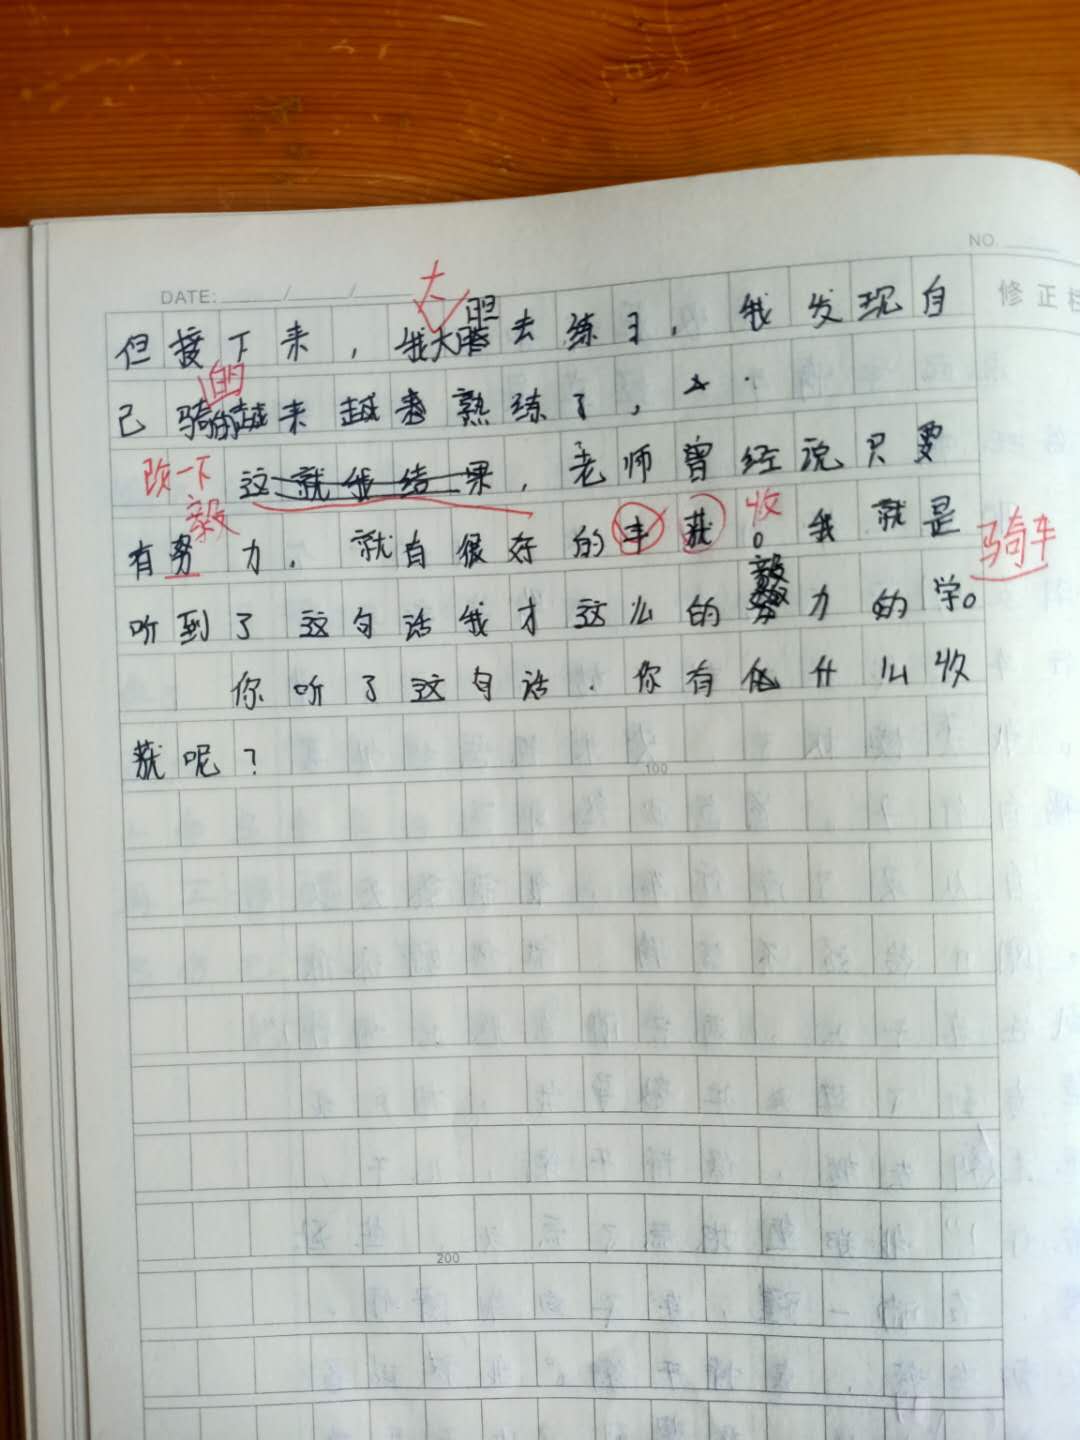 NO.
DATE: / /
修正栏
大
胆
但接下来，我大胆去练习，我发现自
的
己骑的越来越来熟练了，
改一下
这就我结果，老师曾经说只要
毅
收
有努力．就有很好的丰获。我就是
骑车
毅
听到了这句话我才这么的力的学。
你听了这句话．你有什么收
获呢？
100
200